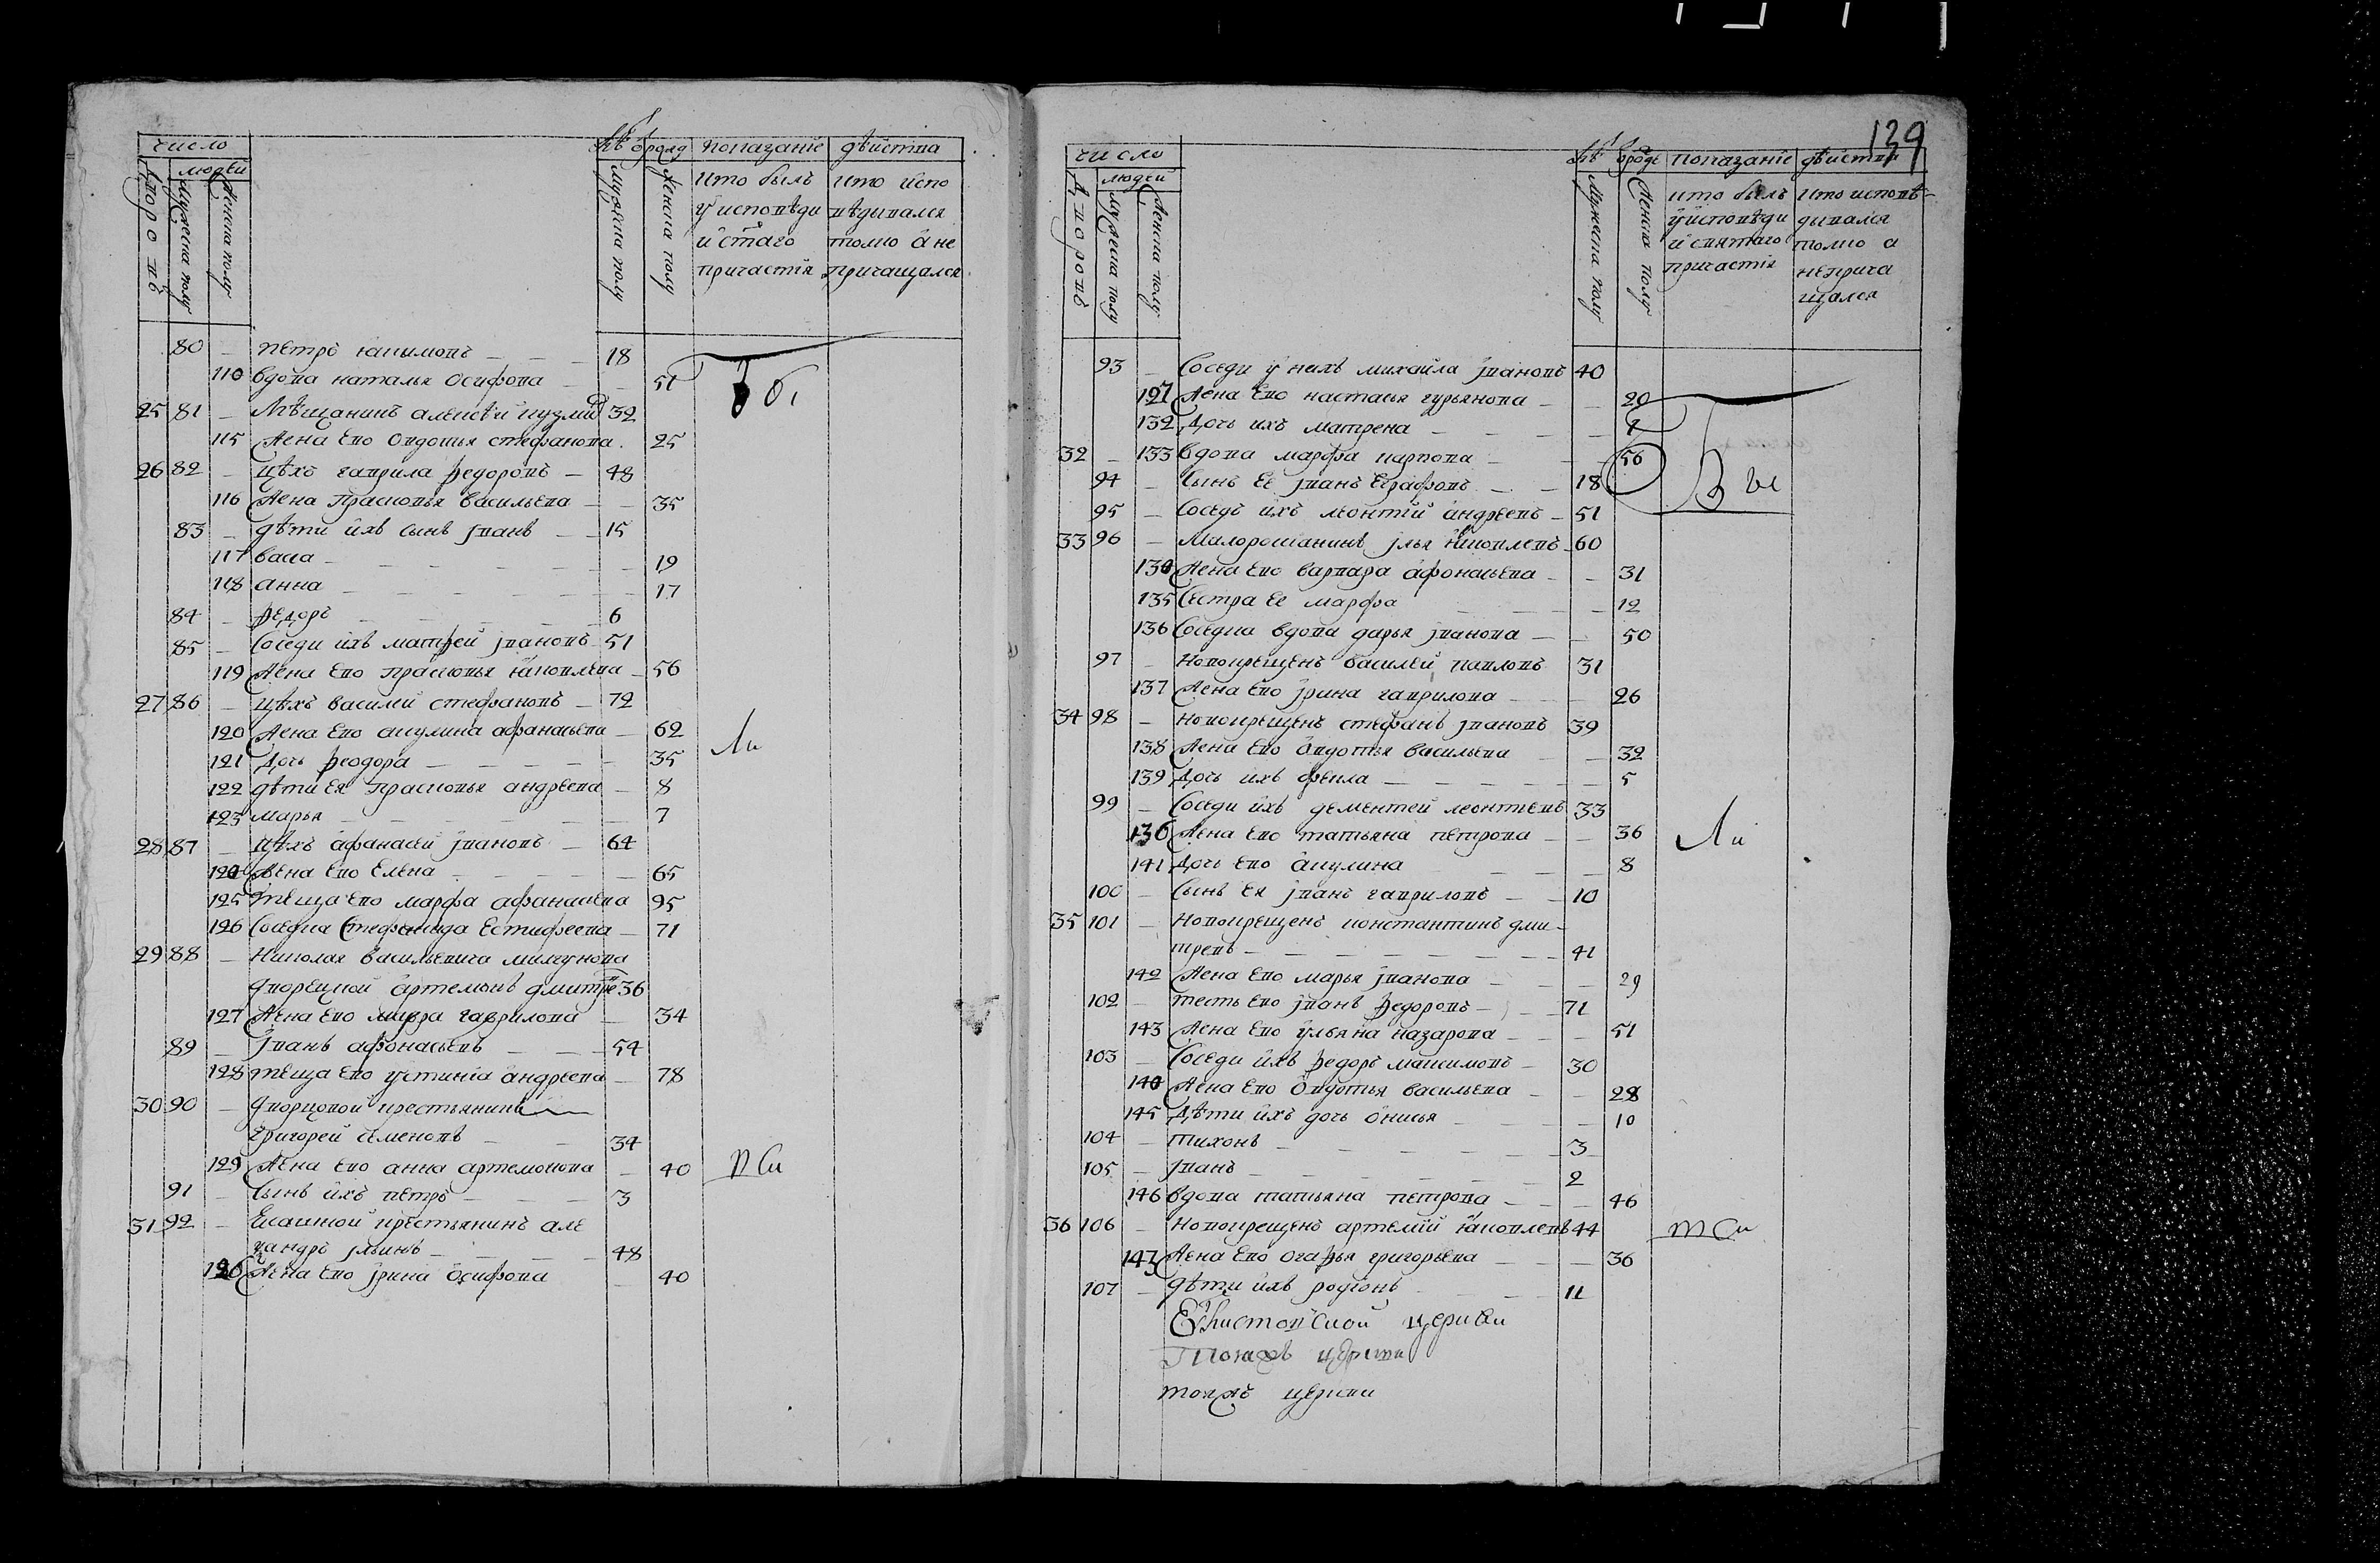 число
людей
Дворовъ
Мужеска полу
Женска полу
Мужеска полу
Женска полу
показаніе действа
кто былъ кто испо
у исповѣди вѣдывался
и стаго толко а не
причастія причащался
80 – петръ якимовъ – – – 18
110 вдова наталья Осифова – – 51
25 81 – Мѣщанинъ алексѣй кузми 32
115 Жена Ево Овдотья стефанова. 25
26 82 – цѣхъ гаврила ѳедоровъ – 48
116 Жена Прасковья васильева – – 35
83 – дѣти ихъ сынъ јванъ – – 15
117 васа – – – 19
118 анна – – – 17
84 – ѳедоръ – – – 6
85 – Соседи ихъ матвей јвановъ 51
119 Жена Ево прасковья яковлева – 56
27 86 – цѣхъ василей стефановъ – 72
120 Жена Ево акулина афанасьева – 62
121 Дочь ѳеодора – – – 35
122 дѣти Ея прасковья андреева – 8
123 марья – – – 7
28 87 – цѣхъ афанасей јвановъ – 64
124 Жена Ево Елена – – – 65
125 теща Ево марфа афанасиева 95
126 Соседка Стефанида Естифеева – 71
29 88 – Николая васильевича милгунова
дворецкой артемонъ дмитре 36
127 Жена Ево марфа гаврилова – 34
89 – јванъ афонасьевъ – – 54
128 теща Ево устиніа андреева – 78
30 90 – дворцовой крестьянинъ
григорей семеновъ – – 34
129 Жена Ево анна артемонова – 40
91 – Сынъ ихъ петръ – – – 3
31 92 – Ясашной крестьянинъ але
ѯандръ јльинъ – – – 48
130 Жена Ево јрина осифова – 40
139
число
людей
Дворовъ
Мужеска полу
Женска полу
Мужеска полу
Женска полу
показаніе действа
кто былъ кто исповѣ-
у исповѣди дывался
и святаго толко а
причастія неприча
щался
93 – Соседи у нихъ михайла јвановъ 40
Жена Ево настасья гурьянова – – 20
132 Дочь ихъ матрена – – –
32 – 133 вдова марфа карпова – – 56
94 – Сынъ Ее јванъ Еграфовъ – – 18
95 – Соседъ ихъ леонтій андреевъ – 51
33 96 – Малоросіанинъ јлья яковлевъ – 60
134 Жена Ево варвара афонасьева – – 31
135 Сестра Ее марфа – – – 12
136 Соседка вдова дарья јванова – – 50
97 – Новокрещенъ василей павловъ 31
137 Жена Ево јрина гаврилова – – 26
34 98 – новокрещенъ стефанъ јвановъ 39
138 Жена Ево овдотья васильева – – 32
139 Дочь ихъ фекла – – – 5
99 – Соседи ихъ дементей леонтиевъ 33
Жена Ево татьяна петрова – – 36
141 Дочь Ево акулина – – – 8
100 – Сынъ Ея јванъ гавриловъ – – 10
35 101 – Новокрещенъ константинъ дми-
треевъ – – – 41
142 Жена Ево марья јванова – – – 29
102 – тесть Ево јванъ ѳедоровъ – – 71
143 Жена Ево ульяна назарова – – – 51
103 – Соседи ихъ ѳедоръ максимовъ – 30
144 Жена Ево Овдотья васильева – – 28
145 Дѣти ихъ дочь онисья – – – 10
104 – тихонъ – – – 3
105 – јванъ – – – 2
146 вдова татьяна петрова – – 46
36 106 – новокрещенъ артемій яковлевъ 44
147 Жена Ево огаѳья григорьева – – – 36
107 – дѣти ихъ родіонъ – – 11
церкви
церкви
тояжъ церкви